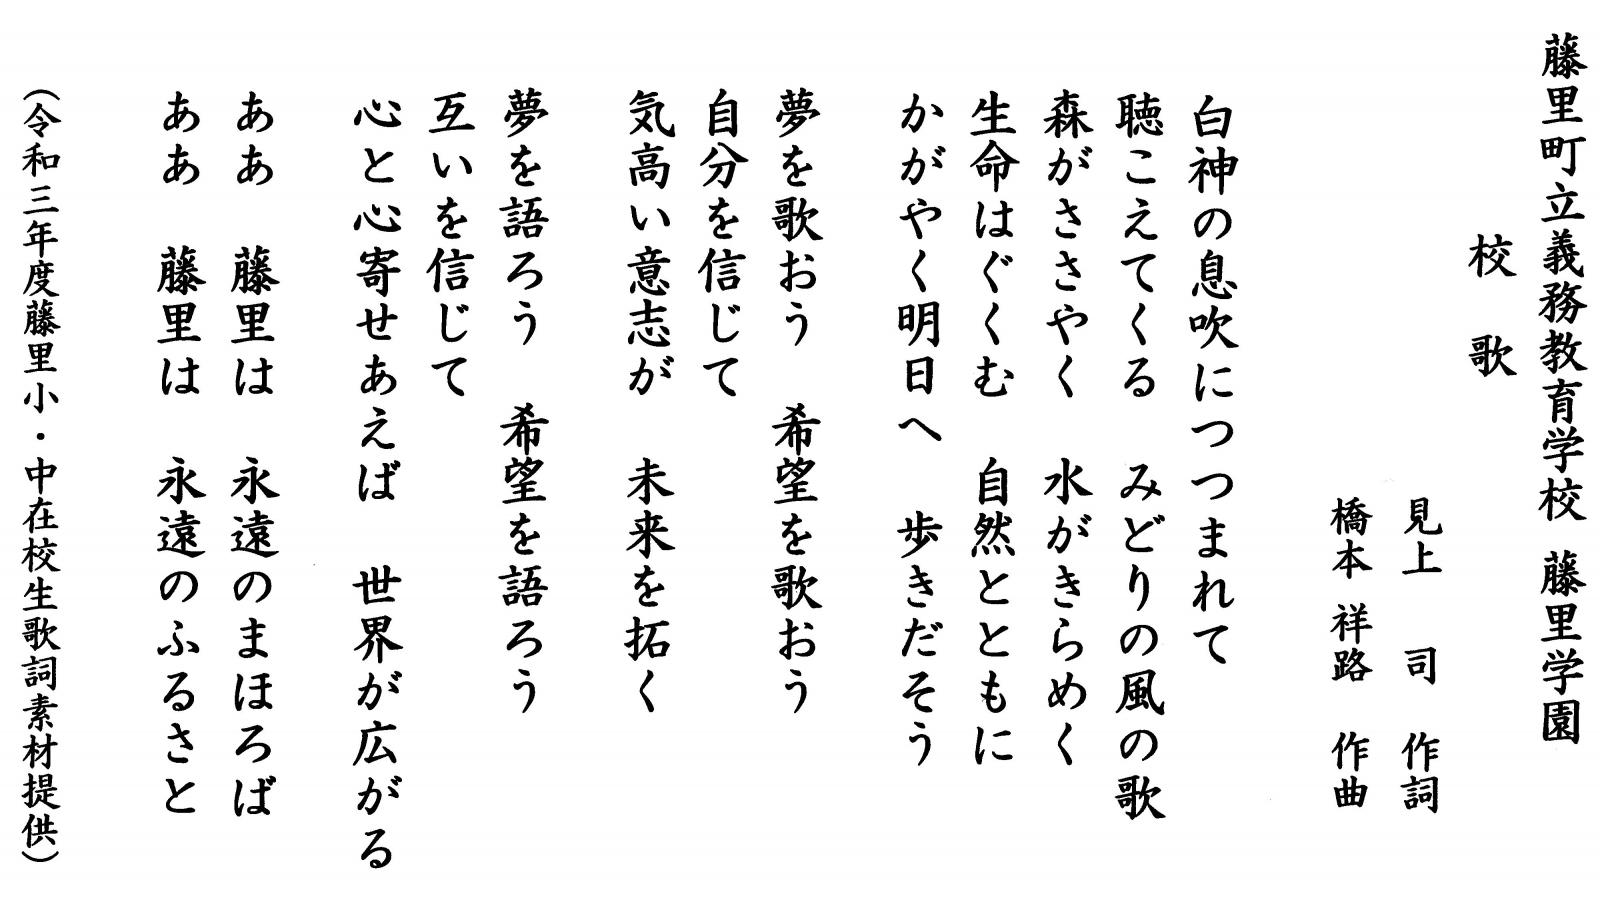 藤里町立義務教育学校 藤里学園
校歌
見上 司 作詞
橋本 祥路 作曲
白神の息吹につつまれて
聴こえてくる みどりの風の歌
森がささやく 水がきらめく
生命はぐくむ 自然とともに
かがやく明日へ 歩きだそう
夢を歌おう 希望を歌おう
自分を信じて
気高い意志が 未来を拓く
夢を語ろう 希望を語ろう
互いを信じて
心と心寄せあえば 世界が広がる
ああ 藤里は 永遠のまほろば
ああ 藤里は 永遠のふるさと
(令和三年度藤里小・中在校生歌詞素材提供)